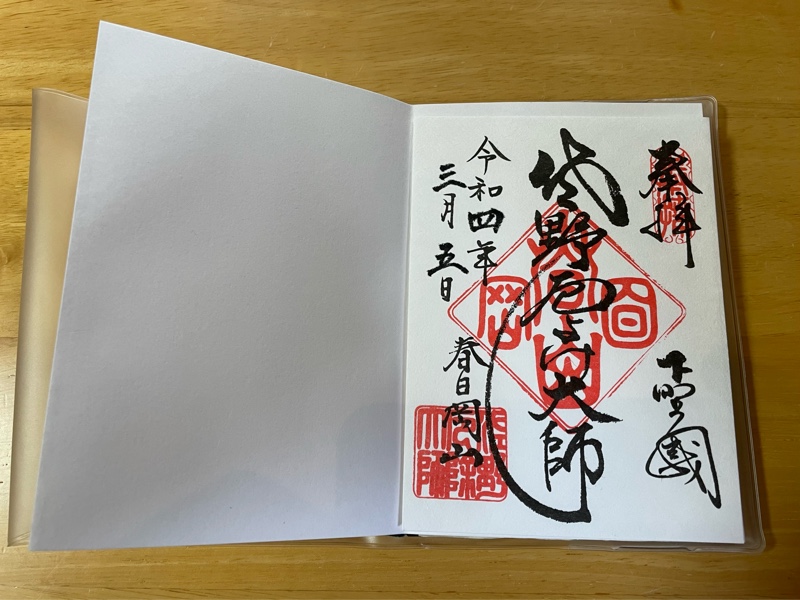 奉拝
下野國
佐野厄よけ大師
令和四年
三月五日
春日岡山